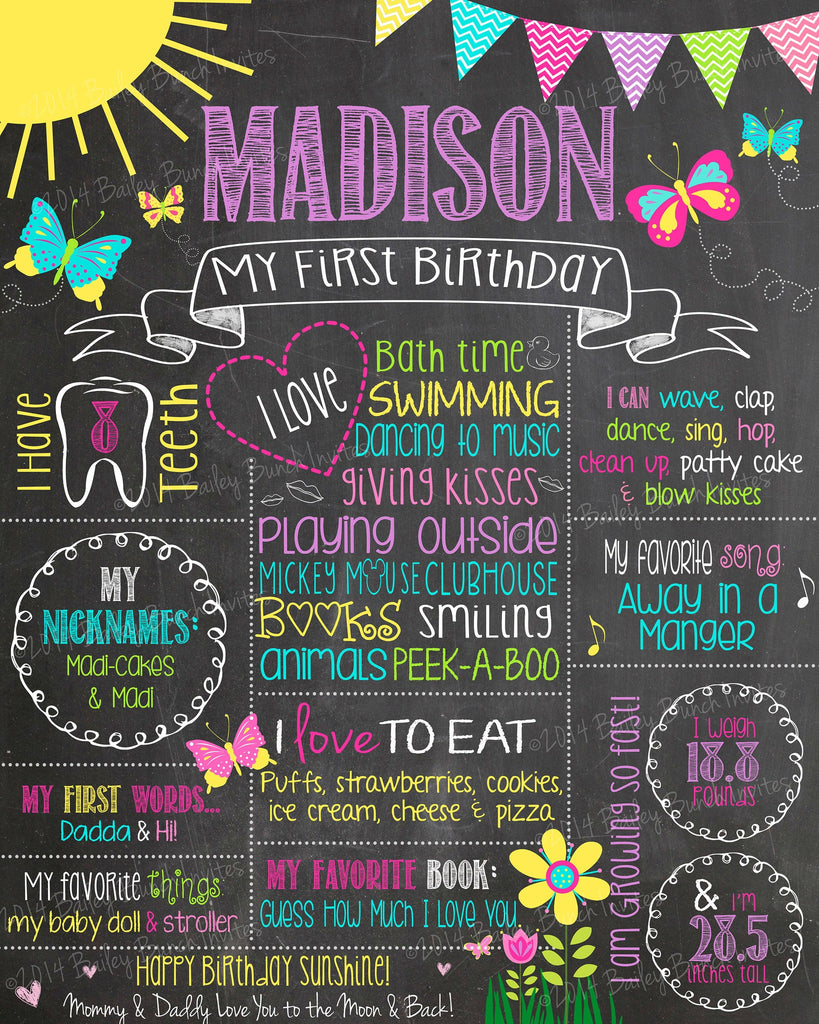 MADISON
MY FIRST BIRTHDAY
I Have
8
Teeth
I LOVE
Bath time
SWIMMING
Dancing to music
giving kisses
Playing outside
MICKEY MOUSE CLUBHOUSE
BOOKS smiling
animals PEEK-A-BOO
I CAN wave, clap,
dance, sing, hop,
clean up, patty cake
& blow kisses
MY
NICKNAMES:
Madi-cakes
& Madi
My favorite song:
Away in a
Manger
I love TO EAT
Puffs, strawberries, cookies,
ice cream, cheese & pizza
MY FIRST WORDS...
Dadda & Hi!
My favorite things:
my baby doll & stroller
MY FAVORITE BOOK:
Guess How Much I Love You
I am GROWING so fast!
I weigh
18.8
POUNDS
& I'm
28.5
inches tall
HAPPY BIRTHDAY SUNSHINE!
Mommy & Daddy Love You to the Moon & Back!
©2014 Bailey Bunch Invites